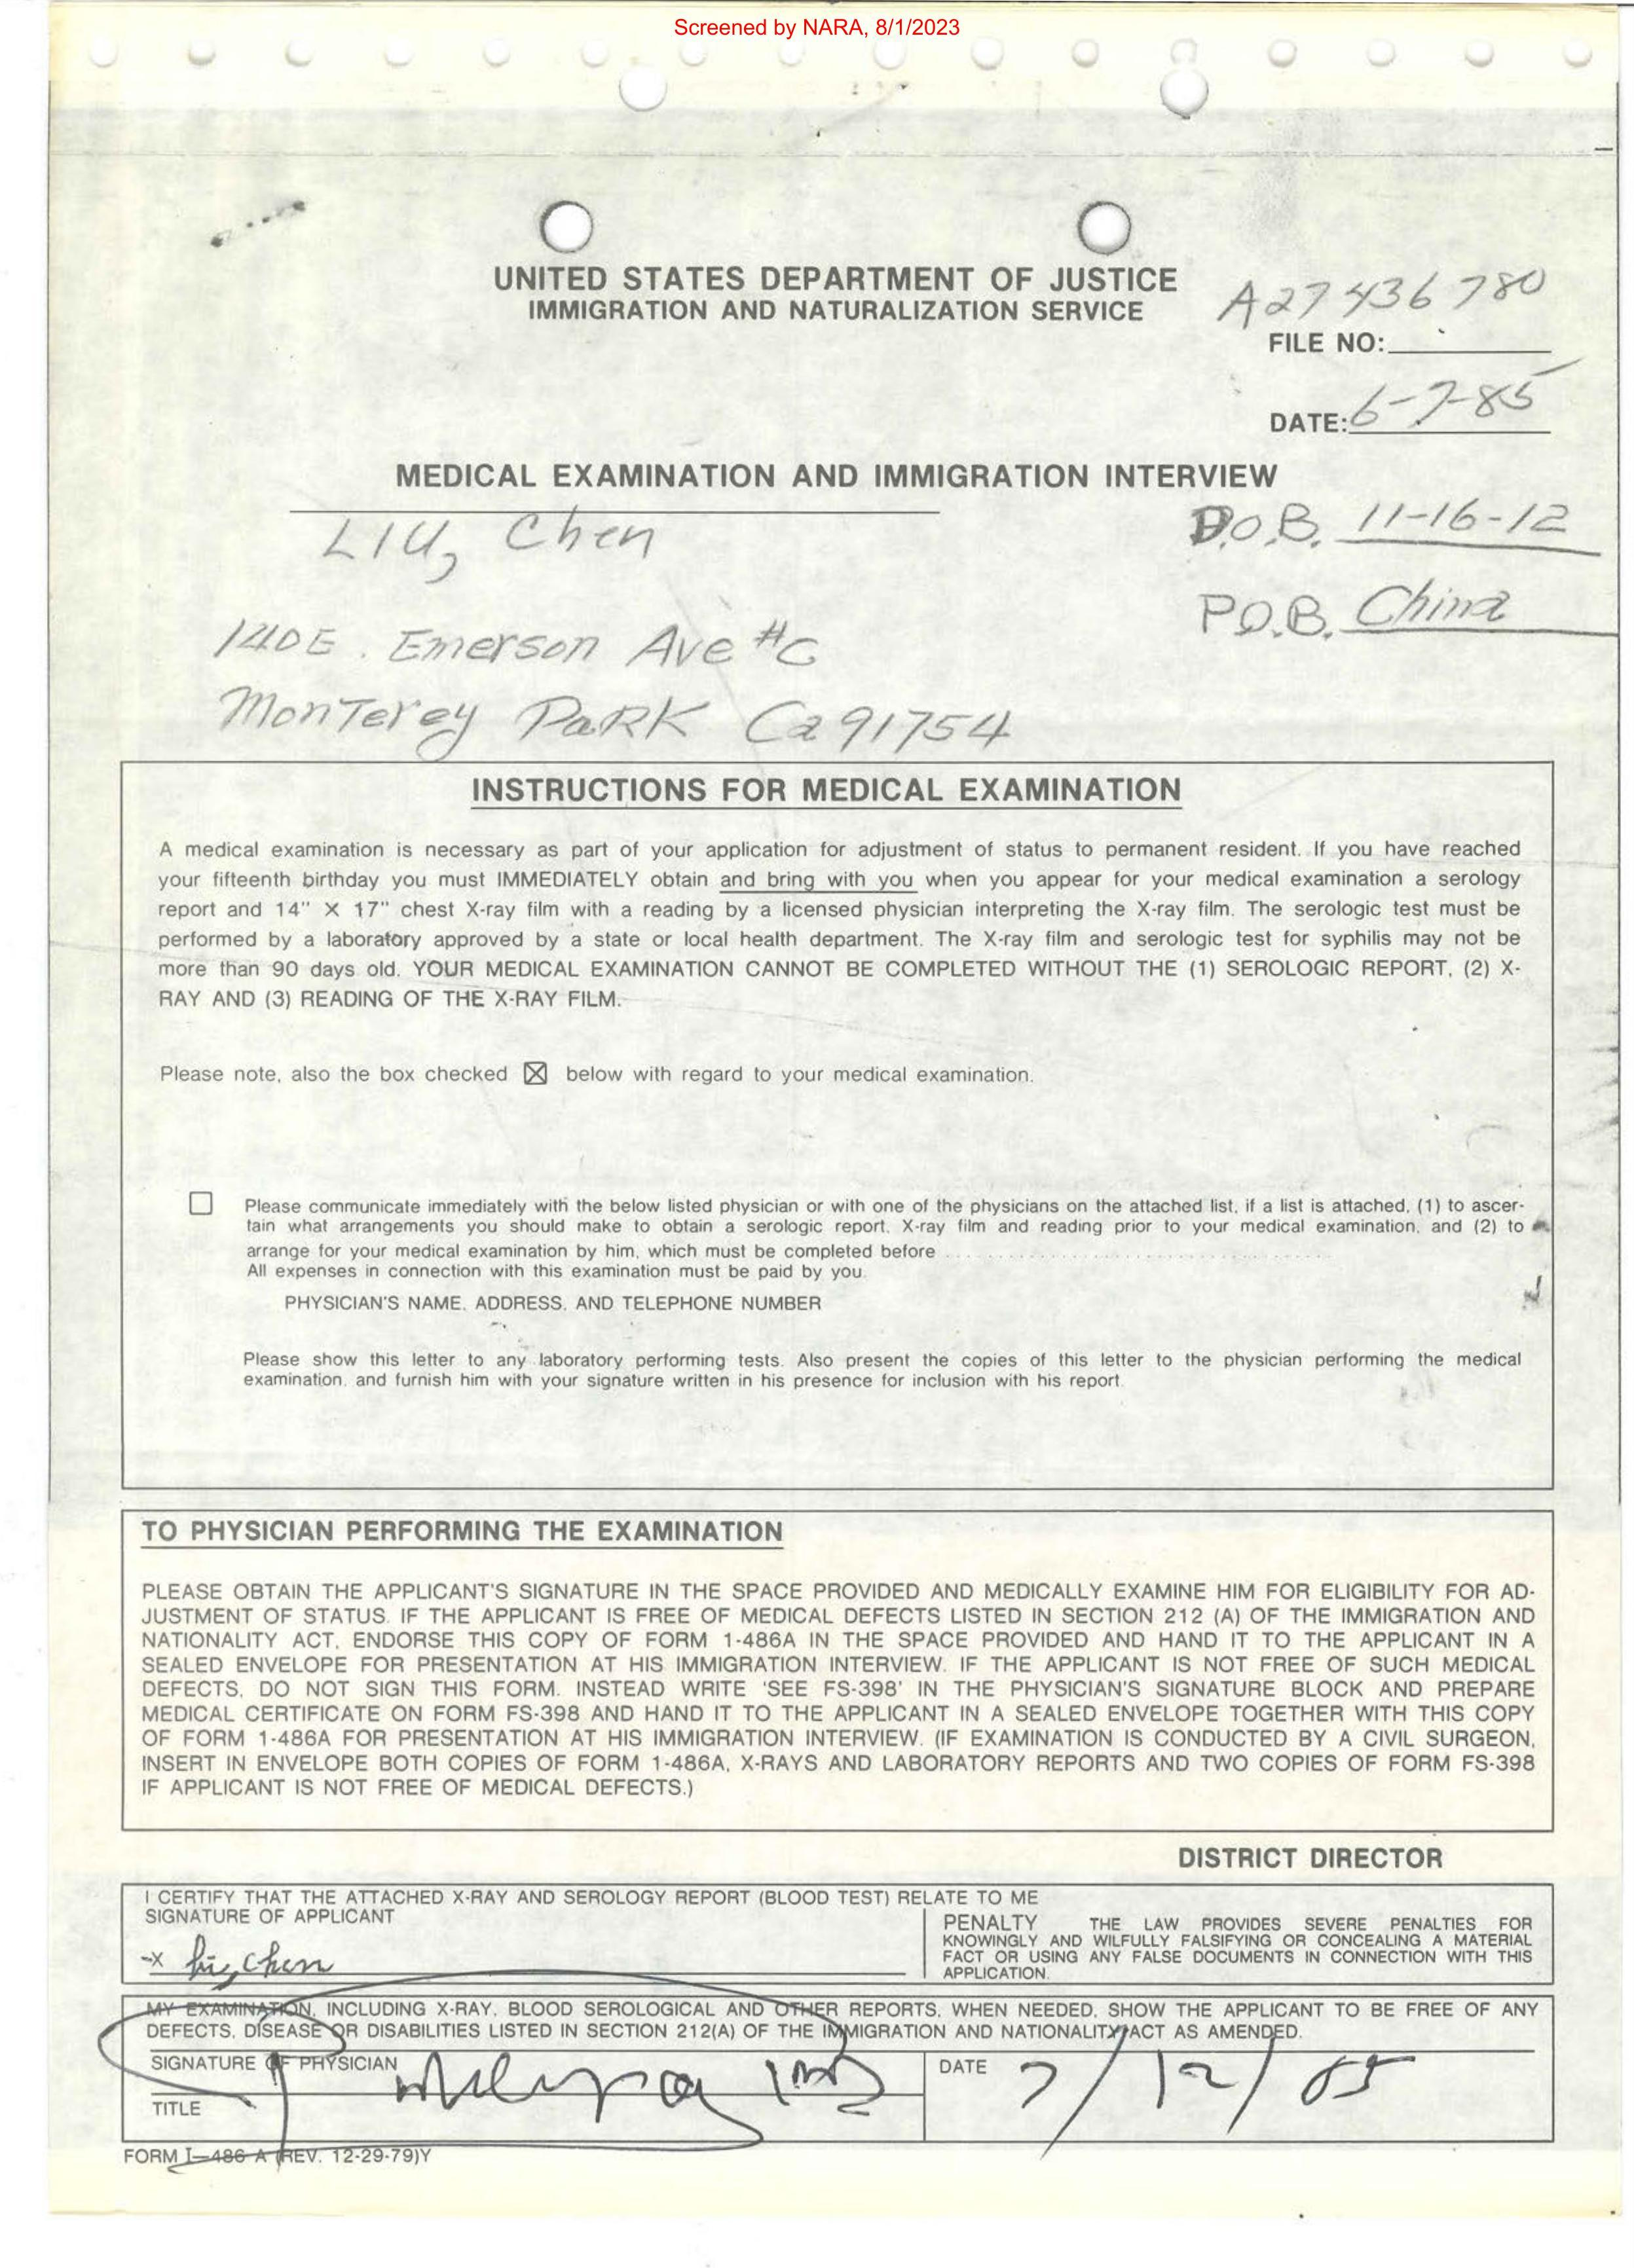 Screened by NARA, 8/1/2023
UNITED STATES DEPARTMENT OF JUSTICE
IMMIGRATION AND NATURALIZATION SERVICE
A27 436 780
FILE NO:
DATE: 6-7-85
MEDICAL EXAMINATION AND IMMIGRATION INTERVIEW
LIU, Chen
D.O.B. 11-16-12
P.O.B. China
140 E. Emerson Ave #C
Monterey Park Ca 91754
INSTRUCTIONS FOR MEDICAL EXAMINATION
A medical examination is necessary as part of your application for adjustment of status to permanent resident. If you have reached
your fifteenth birthday you must IMMEDIATELY obtain and bring with you when you appear for your medical examination a serology
report and 14" X 17" chest X-ray film with a reading by a licensed physician interpreting the X-ray film. The serologic test must be
performed by a laboratory approved by a state or local health department. The X-ray film and serologic test for syphilis may not be
more than 90 days old. YOUR MEDICAL EXAMINATION CANNOT BE COMPLETED WITHOUT THE (1) SEROLOGIC REPORT, (2) X-
RAY AND (3) READING OF THE X-RAY FILM.
Please note, also the box checked ☒ below with regard to your medical examination.
☐ Please communicate immediately with the below listed physician or with one of the physicians on the attached list, if a list is attached, (1) to ascer-
tain what arrangements you should make to obtain a serologic report, X-ray film and reading prior to your medical examination, and (2) to
arrange for your medical examination by him, which must be completed before ........................................
All expenses in connection with this examination must be paid by you.
PHYSICIAN'S NAME, ADDRESS, AND TELEPHONE NUMBER
Please show this letter to any laboratory performing tests. Also present the copies of this letter to the physician performing the medical
examination, and furnish him with your signature written in his presence for inclusion with his report.
TO PHYSICIAN PERFORMING THE EXAMINATION
PLEASE OBTAIN THE APPLICANT'S SIGNATURE IN THE SPACE PROVIDED AND MEDICALLY EXAMINE HIM FOR ELIGIBILITY FOR AD-
JUSTMENT OF STATUS. IF THE APPLICANT IS FREE OF MEDICAL DEFECTS LISTED IN SECTION 212 (A) OF THE IMMIGRATION AND
NATIONALITY ACT, ENDORSE THIS COPY OF FORM 1-486A IN THE SPACE PROVIDED AND HAND IT TO THE APPLICANT IN A
SEALED ENVELOPE FOR PRESENTATION AT HIS IMMIGRATION INTERVIEW. IF THE APPLICANT IS NOT FREE OF SUCH MEDICAL
DEFECTS, DO NOT SIGN THIS FORM. INSTEAD WRITE 'SEE FS-398' IN THE PHYSICIAN'S SIGNATURE BLOCK AND PREPARE
MEDICAL CERTIFICATE ON FORM FS-398 AND HAND IT TO THE APPLICANT IN A SEALED ENVELOPE TOGETHER WITH THIS COPY
OF FORM 1-486A FOR PRESENTATION AT HIS IMMIGRATION INTERVIEW. (IF EXAMINATION IS CONDUCTED BY A CIVIL SURGEON,
INSERT IN ENVELOPE BOTH COPIES OF FORM 1-486A, X-RAYS AND LABORATORY REPORTS AND TWO COPIES OF FORM FS-398
IF APPLICANT IS NOT FREE OF MEDICAL DEFECTS.)
DISTRICT DIRECTOR
I CERTIFY THAT THE ATTACHED X-RAY AND SEROLOGY REPORT (BLOOD TEST) RELATE TO ME
SIGNATURE OF APPLICANT
-X Liu, Chen
PENALTY THE LAW PROVIDES SEVERE PENALTIES FOR
KNOWINGLY AND WILFULLY FALSIFYING OR CONCEALING A MATERIAL
FACT OR USING ANY FALSE DOCUMENTS IN CONNECTION WITH THIS
APPLICATION.
MY EXAMINATION, INCLUDING X-RAY, BLOOD SEROLOGICAL AND OTHER REPORTS, WHEN NEEDED, SHOW THE APPLICANT TO BE FREE OF ANY
DEFECTS, DISEASE OR DISABILITIES LISTED IN SECTION 212(A) OF THE IMMIGRATION AND NATIONALITY ACT AS AMENDED.
SIGNATURE OF PHYSICIAN
DATE 7/12/85
TITLE
FORM I-486 A (REV. 12-29-79)Y